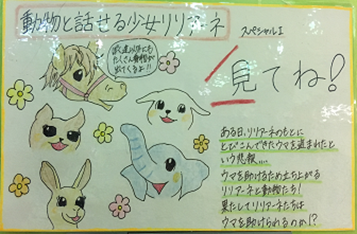 動物と話せる少女リリアーネ
スペシャルI
たくさん動物が
出てくるよ!!
見てね!
ある日、リリアーネのもとに
とびこんできたウマを盗まれたと
いう悲報....
ウマを助けるため立ち上がる
リリアーネと動物たち!
果たしてリリアーネたちは
ウマを助けられるのか!?